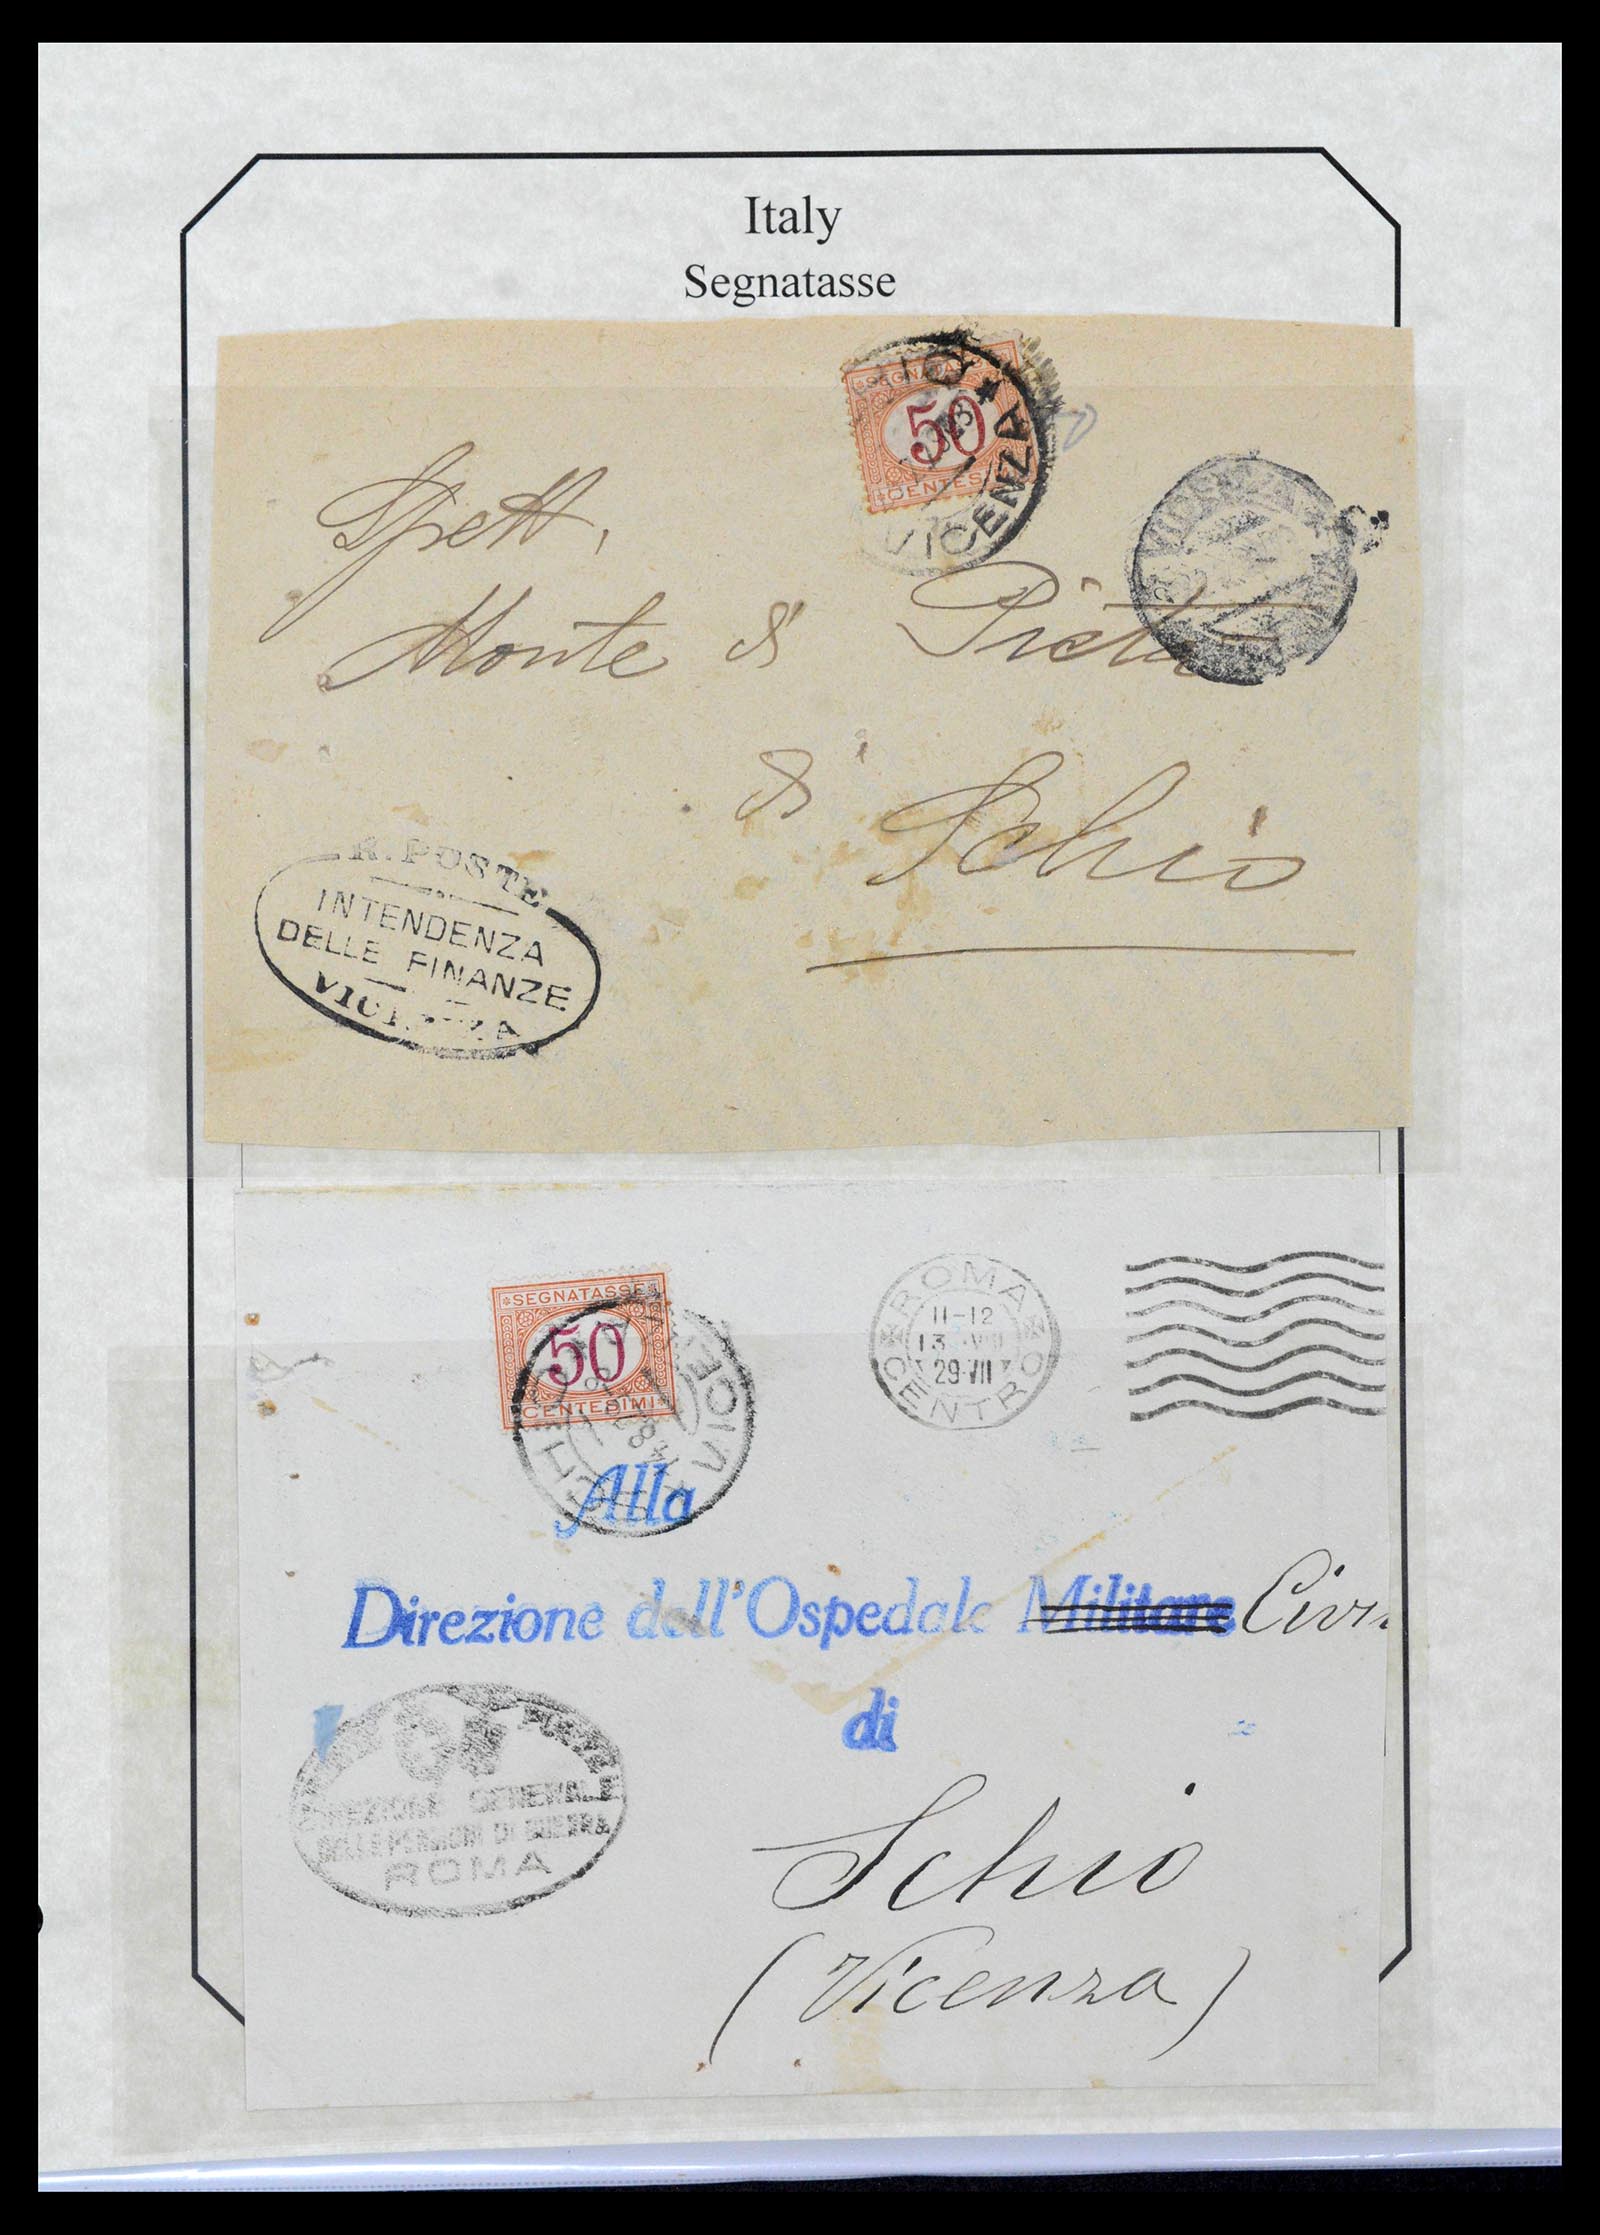 Italy
Segnatasse
SEGNATASSE
50
CENTESIMI
VICENZA
Spett.
Monte di Pietà
di Schio
R. POSTE
INTENDENZA
DELLE FINANZE
VICENZA
SEGNATASSE
50
CENTESIMI
ROMA
11-12
13·VIII
29·VII
CENTRO
Alla
Direzione dell'Ospedale Militare Civi
di
Schio
(Vicenza)
DIREZIONE GENERALE
DELLE PENSIONI DI GUERRA
ROMA